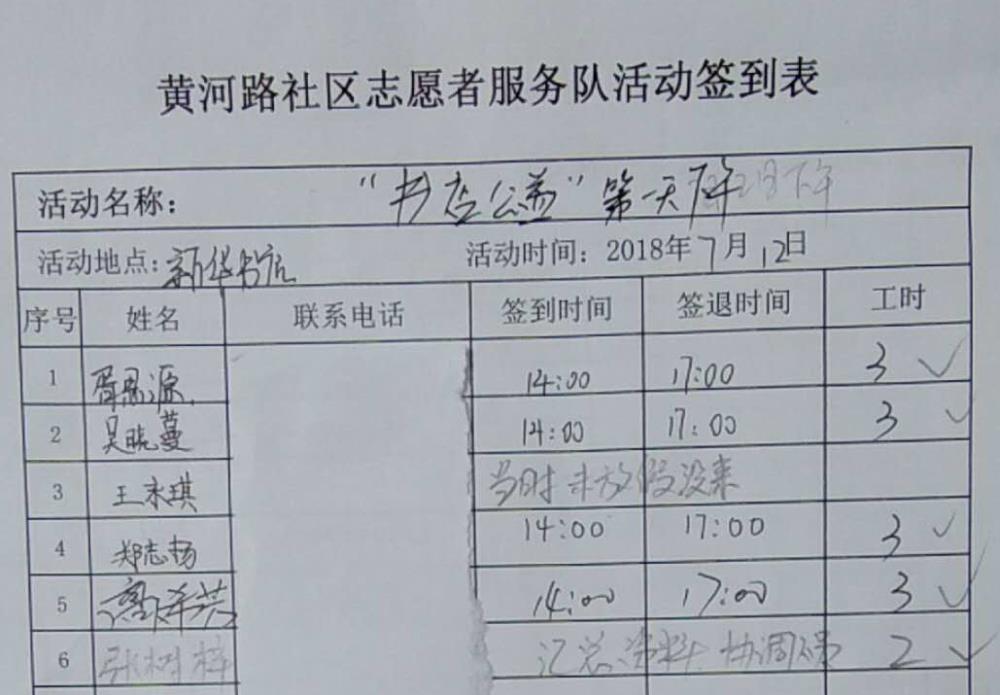 黄河路社区志愿者服务队活动签到表
活动名称： “书店公益”第一天下午
活动地点：新华书店 活动时间：2018年7月12日
序号 姓名 联系电话 签到时间 签退时间 工时
1 胥思源 14:00 17:00 3 ✓
2 吴晓蔓 14:00 17:00 3 ✓
3 王木琪 当时未放假没来
4 郑志杨 14:00 17:00 3 ✓
5 14:00 17:00 3 ✓
6 张树梓 汇总资料 协调员 2 ✓